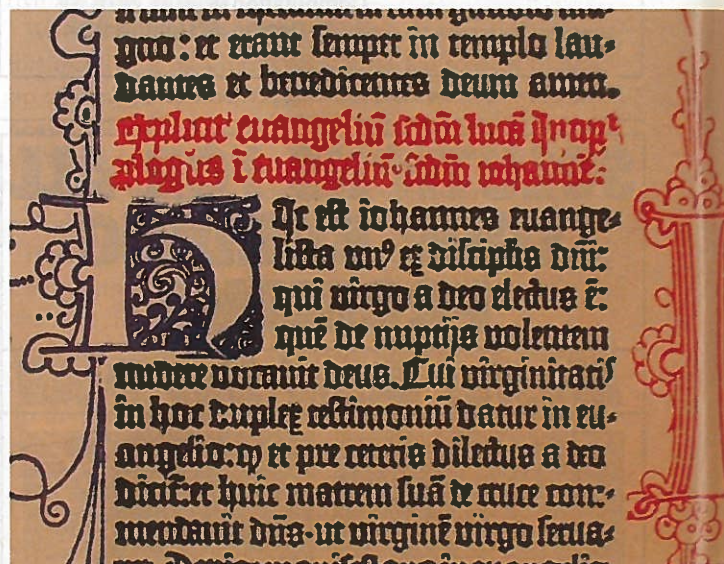 gno : et erant semper in templo lau⸗
dantes et benedicentes deum amen.
explicit euangeliū scdm̄ lucā Incip̄
p̱logus ī euangeliū scdm̄ iohannē.
Hic est iohannes euange⸗
lista unꝰ ex discipl̄is dn̄i:
qui virgo a deo electus ē:
quē de nuptijs volentem
nubere vocauit deus. Cui virginitatiˢ
in hoc duplex testimoniū datur in eu⸗
angelio: ꝙ et pre ceteris dilectus a deo
dicit̄: et huic matrem suā de cruce com⸗
mendauit dn̄s. ut virginē virgo serua⸗